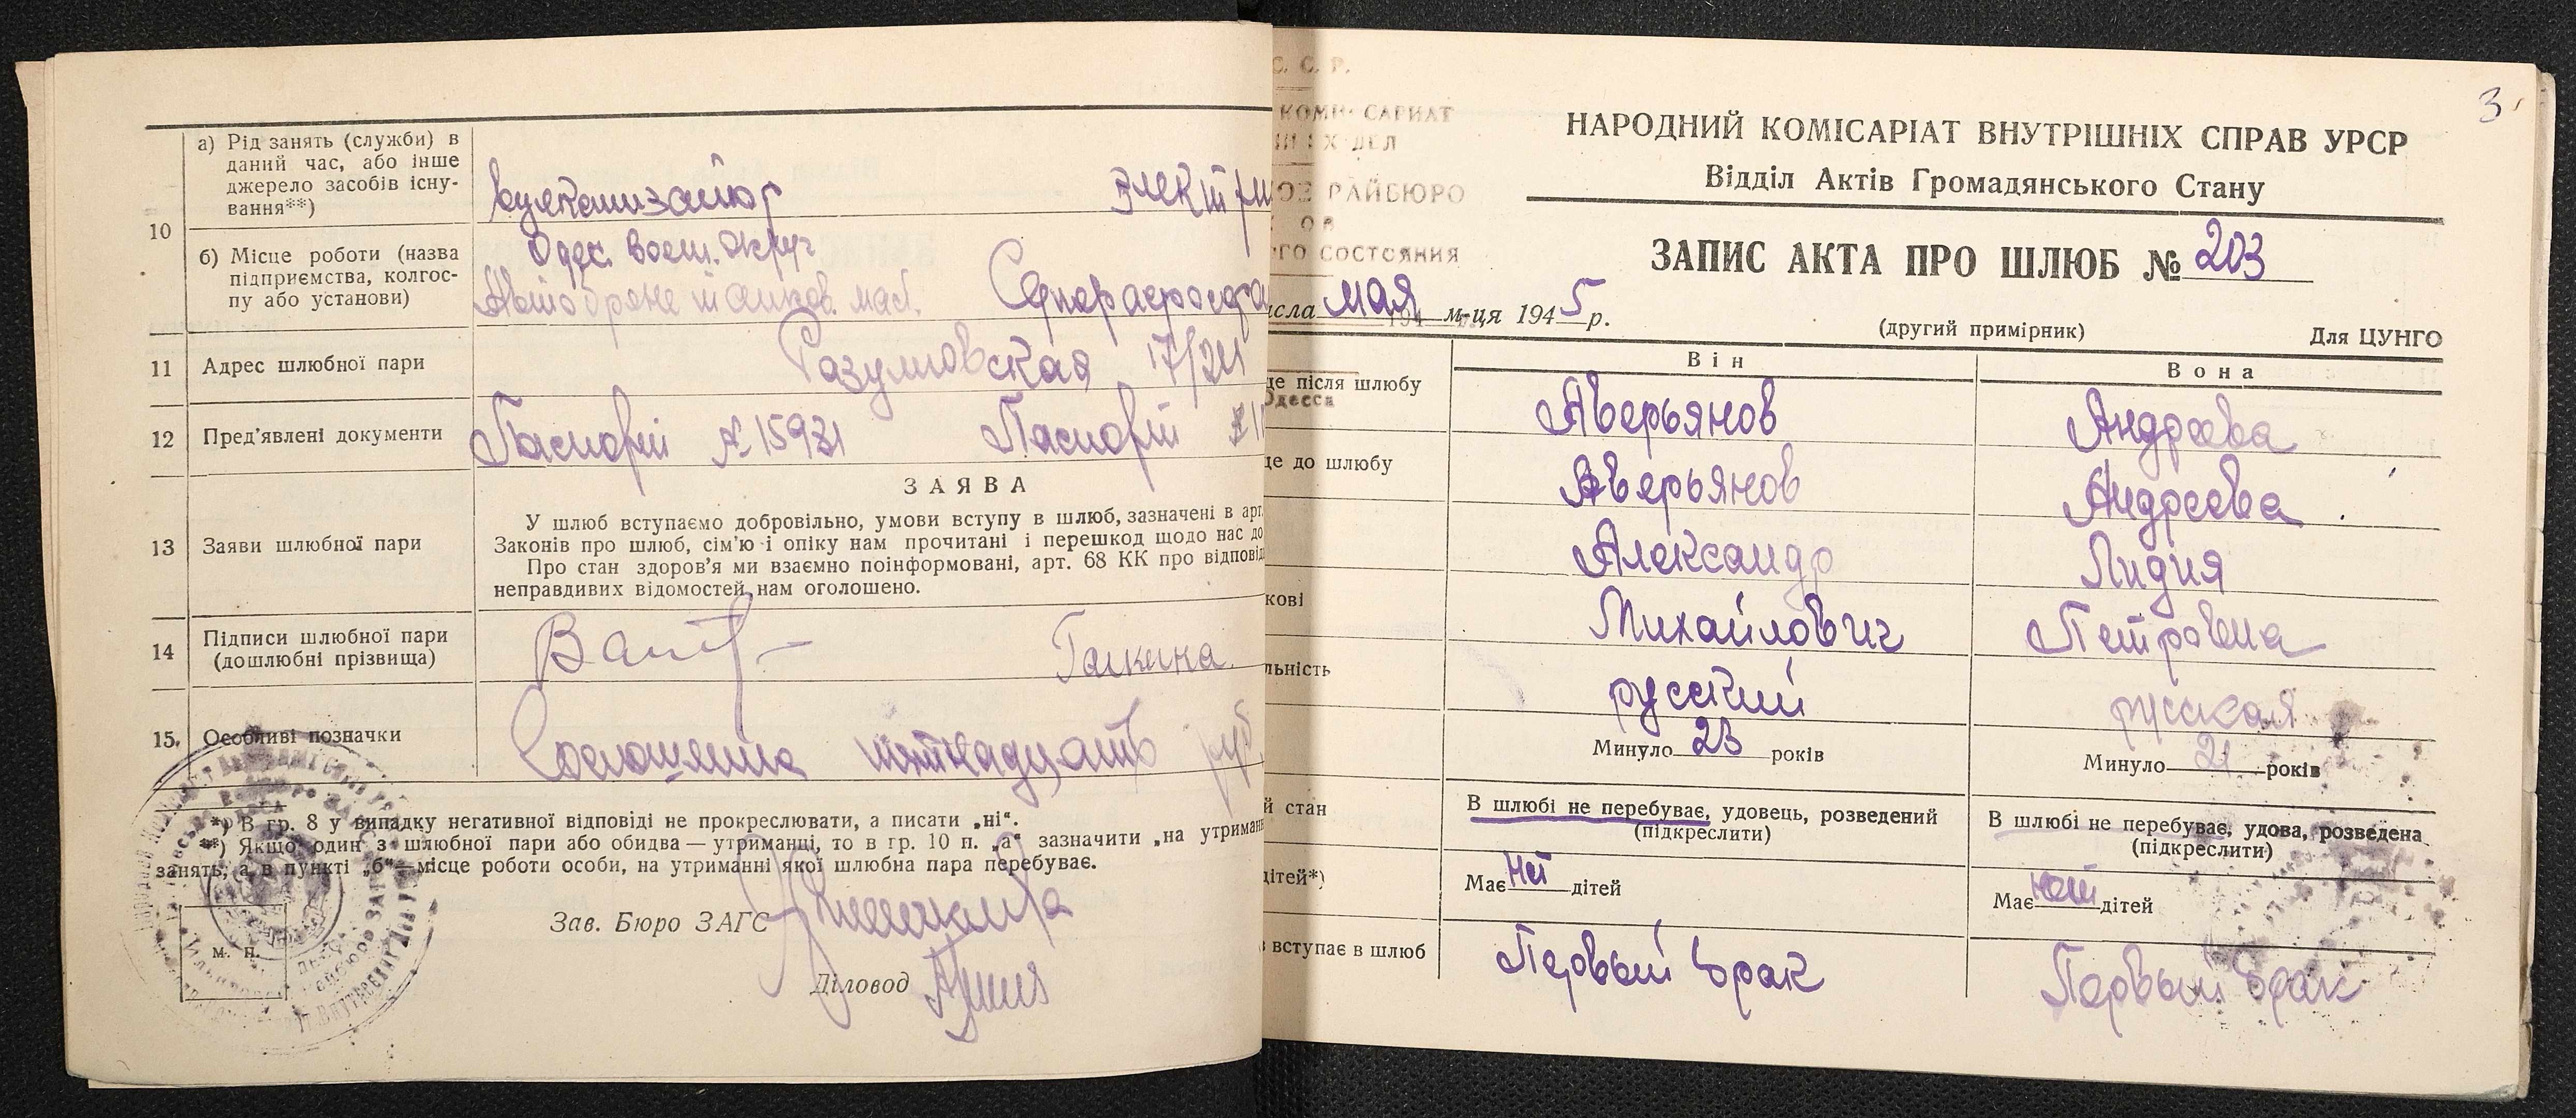 10
а) Рід занять (служби) в
даний час, або інше
джерело засобів існу-
вання**)
вулканизатор
б) Місце роботи (назва
підприємства, колгос-
пу або установи)
Одес. воен. округ
11 Адрес шлюбної пари Разумовская 17/24
12 Пред'явлені документи Паспорт № 15931 Паспорт
ЗАЯВА
13 Заяви шлюбної пари
У шлюб вступаємо добровільно, умови вступу в шлюб, зазначені в арт.
Законів про шлюб, сім'ю і опіку нам прочитані і перешкод щодо нас до
Про стан здоров'я ми взаємно поінформовані, арт. 68 КК про відповід
неправдивих відомостей, нам оголошено.
14 Підписи шлюбної пари
(дошлюбні прізвища)
Галкина
15. Особливі позначки пятнадцать руб
*) В гр. 8 у випадку негативної відповіді не прокреслювати, а писати „ні“.
**) Якщо один з шлюбної пари або обидва — утриманці, то в гр. 10 п. „а“ зазначити „на утриман
занять, а в пункті „б“—місце роботи особи, на утриманні якої шлюбна пара перебуває.
Зав. Бюро ЗАГС
м. п.
Діловод
3
С. С. Р.
КОМИССАРИАТ
ДЕЛ
РАЙБЮРО
ГО СОСТОЯНИЯ
Одесса
НАРОДНИЙ КОМІСАРІАТ ВНУТРІШНІХ СПРАВ УРСР
Відділ Актів Громадянського Стану
ЗАПИС АКТА ПРО ШЛЮБ № 203
исла мая м-ця 1945 р.
(другий примірник)
Для ЦУНГО
Він Вона
ще після шлюбу Аверьянов Андреева
ще до шлюбу Аверьянов Андреева
Александр Лидия
кові Михайлович Петровна
льність русский русская
Минуло 23 років Минуло 21 років
й стан
В шлюбі не перебуває, удовець, розведений
(підкреслити)
В шлюбі не перебуває, удова, розведена
(підкреслити)
дітей*) Має нет дітей Має нет дітей
з вступає в шлюб Первый брак Первый брак